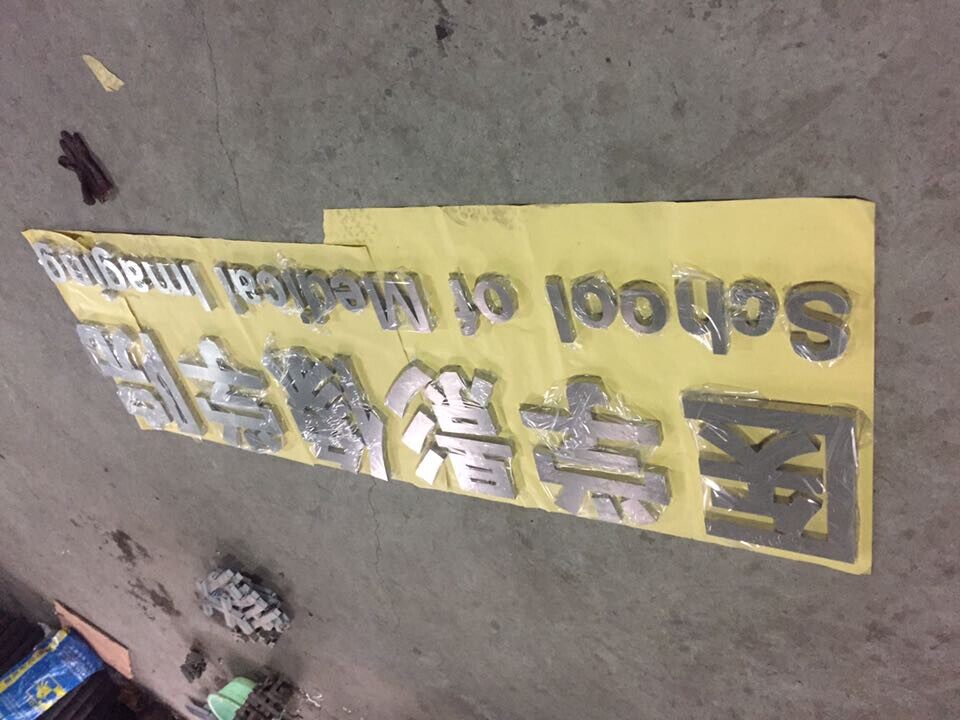 医学影像学院
School of Medical Imaging